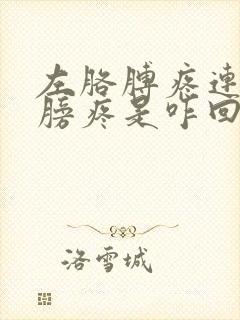 左胳膊疼連
膀疼是咋回
洛雪城